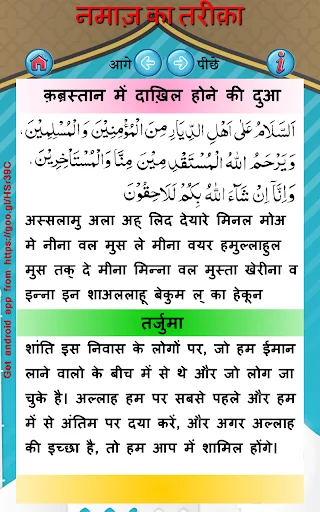 नमाज़ का तरीक़ा
आगे पीछें
क़ब्रस्तान में दाख़िल होने की दुआ
اَلسَّلَامُ عَلٰى اَهْلِ الدِّيَارِ مِنَ الْمُؤْمِنِيْنَ وَالْمُسْلِمِيْنَ.
وَيَرْحَمُ اللّٰهُ الْمُسْتَقْدِمِيْنَ مِنَّا وَالْمُسْتَأْخِرِيْنَ.
وَاِنَّآ اِنْ شَآءَ اللّٰهُ بِكُمْ لَلَاحِقُوْنَ
अस्सलामु अला अह् लिद देयारे मिनल मोअ
मे नीना वल मुस ले मीना वयर हमुल्लाहुल
मुस तक् दे मीना मिन्ना वल मुस्ता खेरीना व
इन्ना इन शाअल्लाहू बेकुम ल् का हेकून
तर्जुमा
शांति इस निवास के लोगों पर, जो हम ईमान
लाने वालो के बीच में से थे और जो लोग जा
चुके है। अल्लाह हम पर सबसे पहले और हम
में से अंतिम पर दया करें, और अगर अल्लाह
की इच्छा है, तो हम आप में शामिल होंगे।
Get android app from https://goo.gl/HSr39C